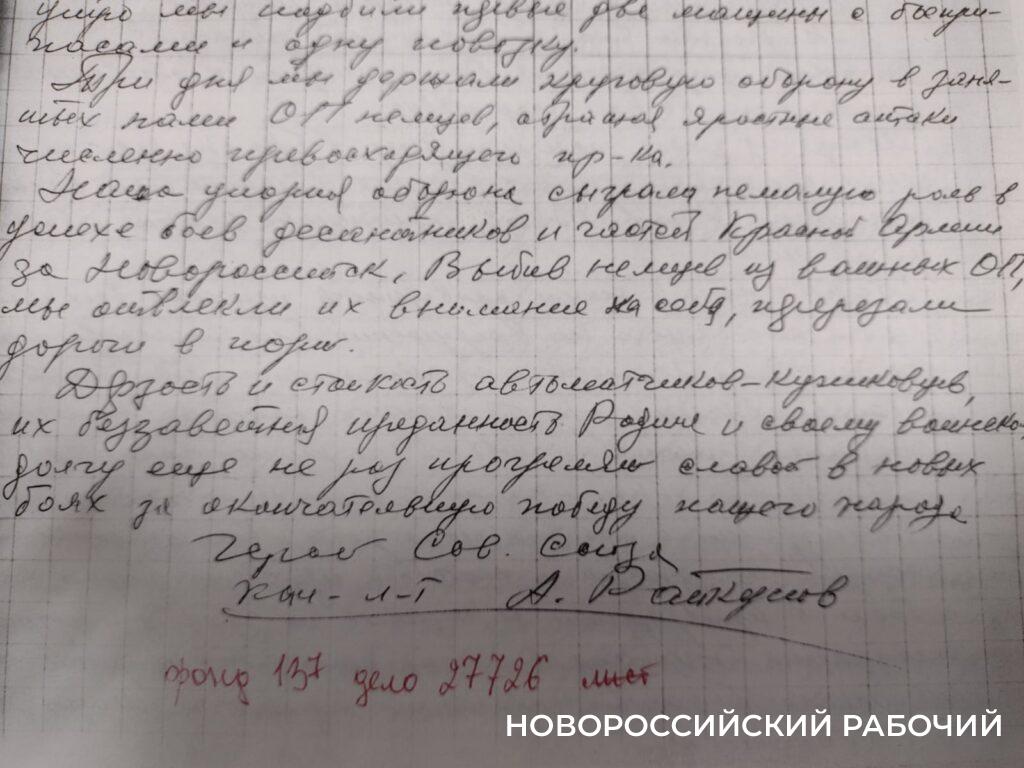 утро мы подбили первые две машины с боепри-
пасами и одну повозку.
Три дня мы держали круговую оборону в заня-
тых нами ОП немцев, отражая яростные атаки
численно превосходящего пр-ка.
Наша упорная оборона сыграла немалую роль в
успехе боев десантников и частей Красной Армии
за Новороссийск. Выбив немцев из важных ОП,
мы отвлекли их внимание на себя, перерезали
дороги в порт.
Дерзость и стойкость автоматчиков-куниковцев,
их беззаветная преданность Родине и своему воинско
долгу еще не раз прогремят славой в новых
боях за окончательную победу нашего народа
Герой Сов. Союза
Кап-л-т А. Райкунов
фонд 137 дело 27726 лист
НОВОРОССИЙСКИЙ РАБОЧИЙ